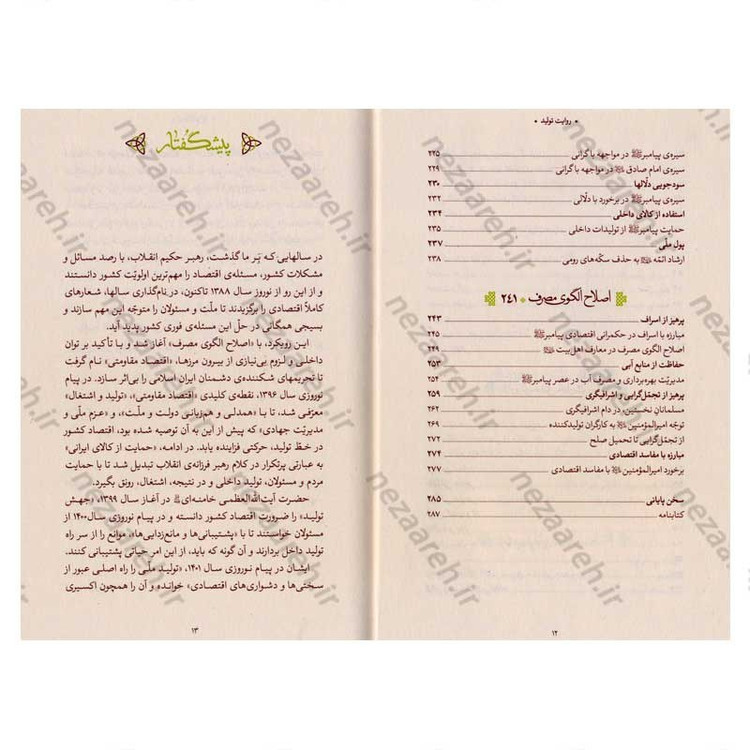 • روایت تولید •
سیره‌ی پیامبرﷺ در مواجهه با گرانی ۲۲۵
سیره‌ی امام صادق در مواجهه با گرانی ۲۲۹
سودجویی دلّالها ۲۳۰
سیره‌ی پیامبرﷺ در برخورد با دلّالی ۲۳۲
استفاده از کالای داخلی ۲۳۴
حمایت پیامبرﷺ از تولیدات داخلی ۲۳۵
پول ملّی ۲۳۷
ارشاد ائمّه به حذف سکّه‌های رومی ۲۳۸
اصلاح الگوی مصرف • ۲۴۱
پرهیز از اسراف ۲۴۳
مبارزه با اسراف در حکمرانی اقتصادی پیامبرﷺ ۲۴۵
اصلاح الگوی مصرف در معارف اهل‌بیت ۲۴۹
حفاظت از منابع آبی ۲۵۳
مدیریّت بهره‌برداری و مصرف آب در عصر پیامبرﷺ ۲۵۴
پرهیز از تجمّل‌گرایی و اشرافیگری ۲۵۹
مسلمانانِ نخستین، در دام اشرافیگری ۲۶۲
توجّه امیرالمؤمنین به کارگران تولیدکننده ۲۶۹
از تجمّل‌گرایی تا تحمیل صلح ۲۷۲
مبارزه با مفاسد اقتصادی ۲۷۴
برخورد امیرالمؤمنین با مفاسد اقتصادی ۲۷۷
سخن پایانی ۲۸۵
کتابنامه ۲۸۷
۱۲
پیشگفتار
در سالهایی که بَر ما گذشت، رهبر حکیم انقلاب، با رصد مسائل و
مشکلات کشور، مسئله‌ی اقتصاد را مهم‌ترین اولویّت کشور دانستند
و از این رو از نوروز سال ۱۳۸۸ تاکنون، در نام‌گذاری سالها، شعارهای
کاملاً اقتصادی را برگزیدند تا ملّت و مسئولان را متوجّه این مهم سازند و
بسیجی همگانی در حلّ این مسئله‌ی فوری کشور پدید آید.
این رویکرد، با «اصلاح الگوی مصرف» آغاز شد و با تأکید بر توان
داخلی و لزوم بی‌نیازی از بیرون مرزها، «اقتصاد مقاومتی» نام گرفت
تا تحریمهای شکننده‌ی دشمنان ایران اسلامی را بی‌اثر سازد. در پیام
نوروزی سال ۱۳۹۶، نقطه‌ی کلیدی «اقتصاد مقاومتی»، «تولید و اشتغال»
معرّفی شد، تا با «همدلی و هم‌زبانی دولت و ملّت»، و «عزم ملّی و
مدیریّت جهادی» که پیش از این به آن توصیه شده بود، اقتصاد کشور
در خطّ تولید، حرکتی فزاینده یابد. در ادامه، «حمایت از کالای ایرانی»
به عبارتی پرتکرار در کلام رهبر فرزانه‌ی انقلاب تبدیل شد تا با حمایت
مردم و مسئولان، تولید داخلی و در نتیجه، اشتغال، رونق بگیرد.
حضرت آیت‌الله‌العظمی خامنه‌ای در آغاز سال ۱۳۹۹، «جهش
تولید» را ضرورت اقتصاد کشور دانسته و در پیام نوروزی سال ۱۴۰۰ از
مسئولان خواستند تا با «پشتیبانی‌ها و مانع‌زدایی‌ها»، موانع را از سر راه
تولید داخل بردارند و آن گونه که باید، از این امر حیاتی پشتیبانی کنند.
ایشان در پیام نوروزی سال ۱۴۰۱، «تولید ملّی را راه اصلی عبور از
سختی‌ها و دشواری‌های اقتصادی» خوانده و آن را همچون اکسیری
۱۳
nezaareh.ir